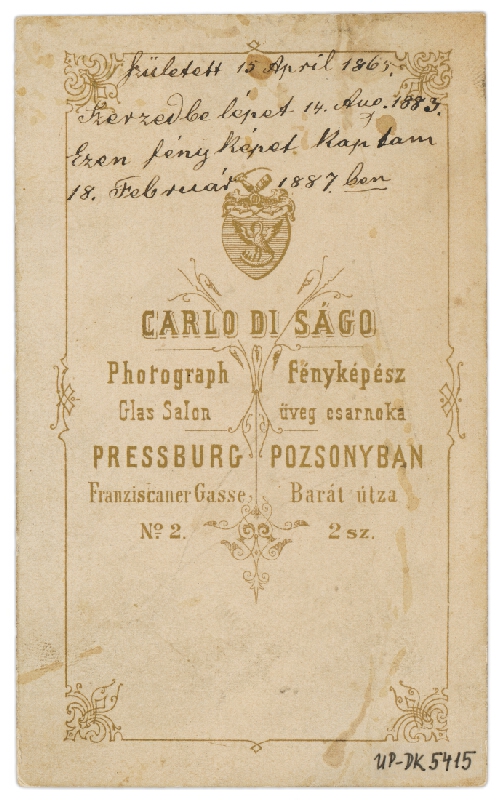 kületett 15 April 1865.
Szerzedbe lépet 14. Aug. 1883.
Ezen fényképet Kaptam
18. Február 1887 ben
CARLO DI SÁGO
Photograph Fényképész
Glas Salon üveg csarnoka
PRESSBURG POZSONYBAN
Franziscaner Gasse Barát útza
No 2. 2 sz.
UP-DK 5415